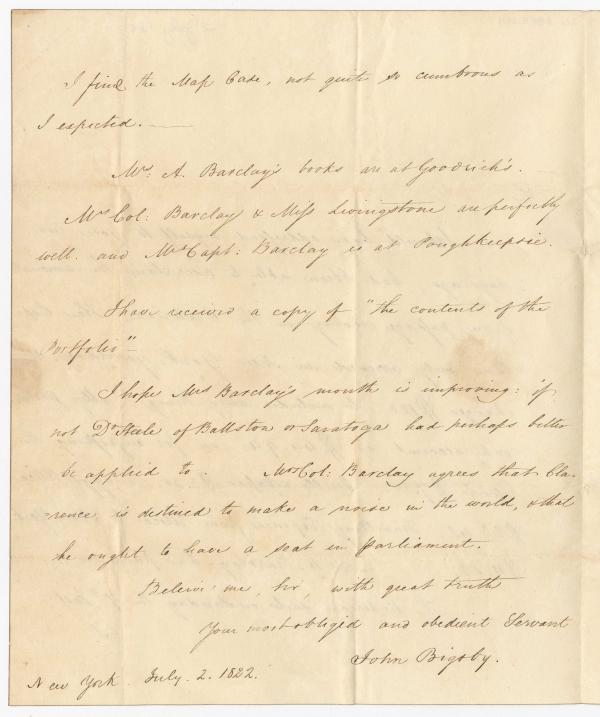 I find the Map Case, not quite so cumbrous as
I expected.
Mrs: A. Barclay's books are at Goodrich's.
Mrs Col: Barclay & Miss Livingstone are perfectly
well. and Mrs Capt: Barclay is at Poughkeepsie.
I have received a copy of "the contents of the
Portfolio"
I hope Mrs Barclay's mouth is improving: if
not Dr Steele of Ballston or Saratoga had perhaps better
be applied to. Mrs Col: Barclay agrees that Cla-
=rence is destined to make a noise in the world, & that
he ought to have a seat in Parliament.
Beleive me, Sir, with great truth
Your most obliged and obedient Servant
John Bigsby.
New York July. 2. 1822.